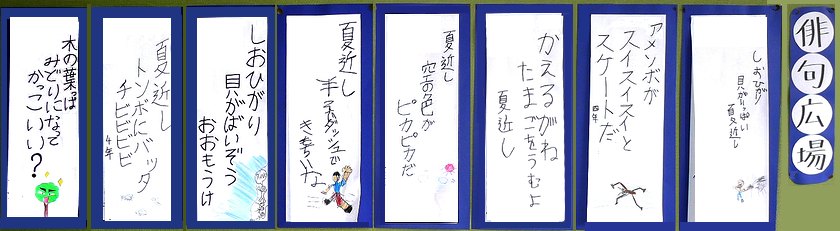 俳句広場
しおひがり
貝がいっぱい
夏近し
アメンボが
スイスイスイと
スケートだ
四年
かえるがね
たまごをうむよ
夏近し
夏近し
空の色が
ピカピカだ
夏近し
半そでダッシュで
きもちいな
しおひがり
貝がばいぞう
おおもうけ
夏近し
トンボにバッタ
チビビビビ
4年
木の葉っぱ
みどりになって
かっこいい?